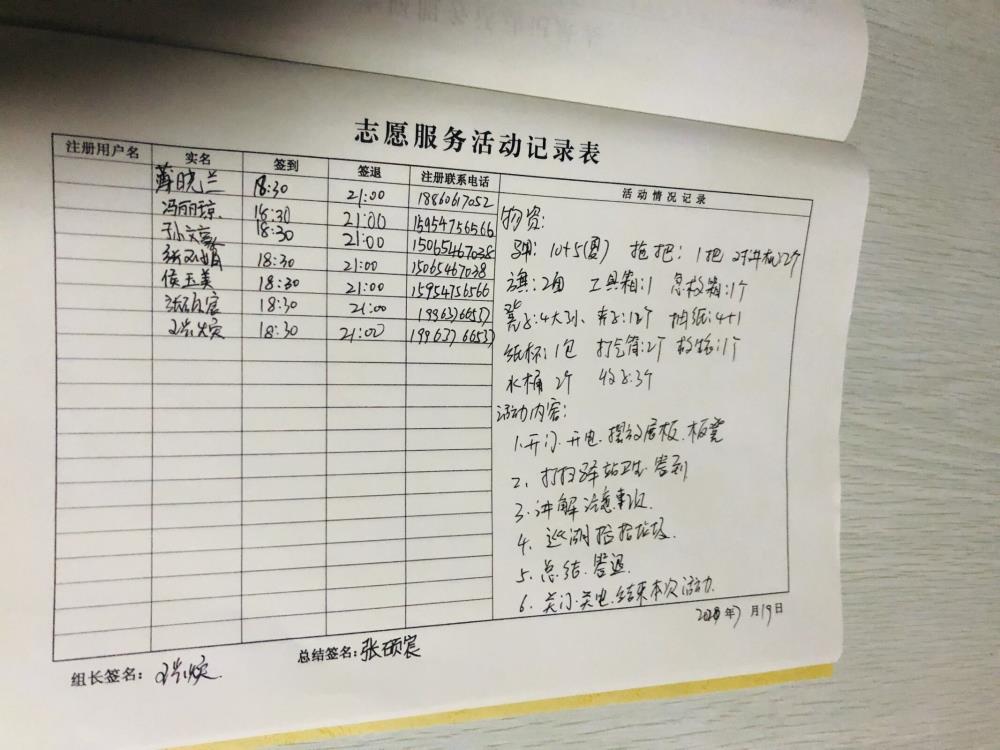 志愿服务活动记录表
注册用户名 实名 签到 签退 注册联系电话 活动情况记录
薄晓兰 18:30 21:00 18860617052
冯丽琼 18:30 21:00 15954756566
孙文 18:30 21:00 15065467038
张 18:30 21:00 15065467038
侯玉美 18:30 21:00 15954756566
张硕宸 18:30 21:00
18:30 21:00 19963766537
物资:
10+5(图) 拖把:1把 2个
旗:2面 工具箱:1 急救箱:1个
凳子:4大3小、夹子:12个 抽纸:4+1
纸杯:1包 打气筒:2个 1个
水桶 2个 3个
活动内容:
1.开门.开电.摆放展板.板凳
2、打扫驿站卫生.签到
3.讲解注意事项.
4、巡湖捡拾垃圾.
5、总结.签退.
6.关门.关电.结束本次活动.
年7月19日
组长签名:
总结签名:张硕宸